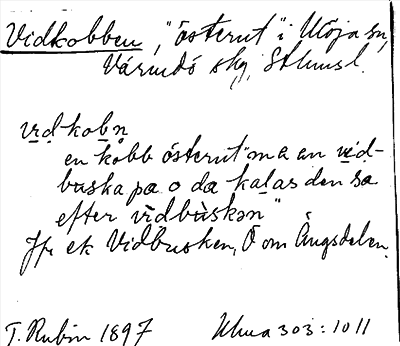 Vidkobben, "österut" i Möja sn,
Värmdö skg, Sthmsl.
vịdkobn
en kobb österut "m a an vid-
buska pa o da kaḷas den sa
efter vidbùskən"
Jfr ek. Vidbusken, Ö om Ängsdelen.
T. Rubin 1897 Ulma 303:1011